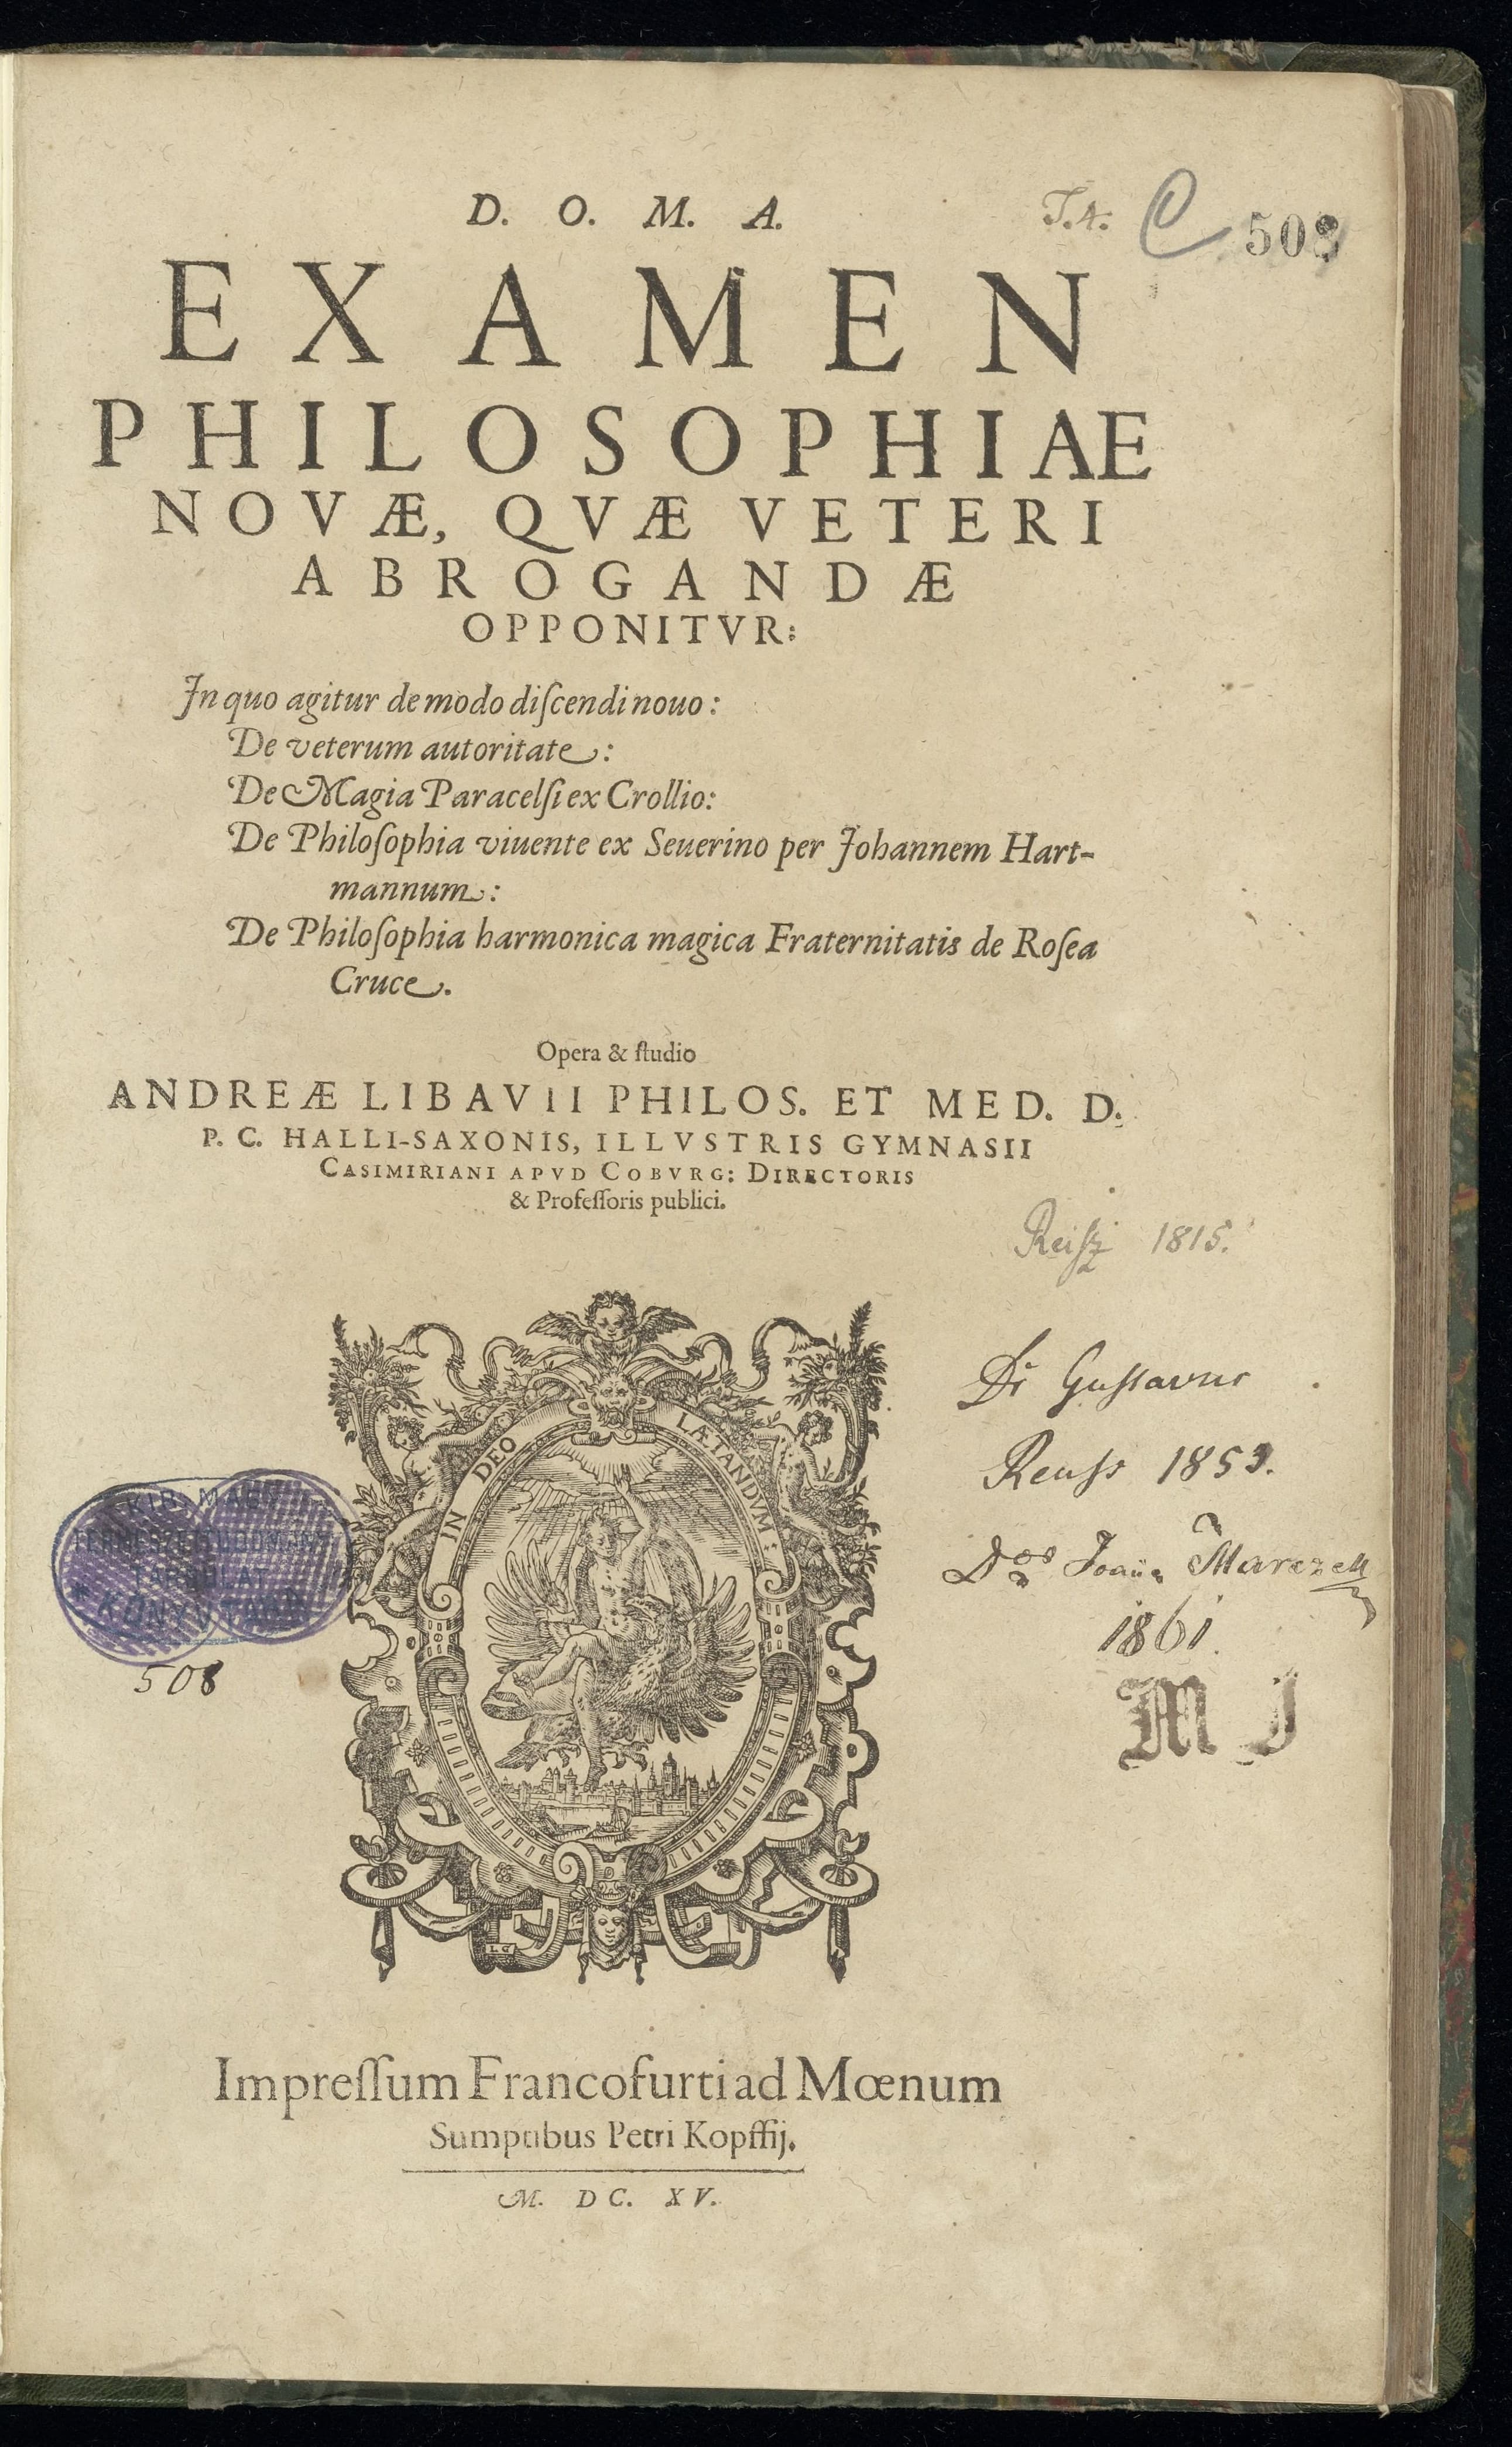 D. O. M. A.
T. A. C 508
EXAMEN
PHILOSOPHIAE
NOVÆ, QVÆ VETERI
ABROGANDÆ
OPPONITVR:
In quo agitur de modo diſcendi nouo:
De veterum autoritate:
De Magia Paracelſi ex Crollio:
De Philoſophia viuente ex Seuerino per Johannem Hart-
mannum:
De Philoſophia harmonica magica Fraternitatis de Roſea
Cruce.
Opera & ſtudio
ANDREÆ LIBAVII PHILOS. ET MED. D.
P. C. HALLI-SAXONIS, ILLVSTRIS GYMNASII
CASIMIRIANI APVD COBVRG: DIRECTORIS
& Profeſſoris publici.
Reiſz 1815.
IN DEO LÆTANDVM
Dr Gustavus
Reuſs 1853.
KIR. MAGY.
TERMÉSZETTUDOMÁNYI
TÁRSULAT
KÖNYVTÁRA
508
1861.
M J
Impreſſum Francofurti ad Mœnum
Sumptibus Petri Kopffij.
M. DC. XV.